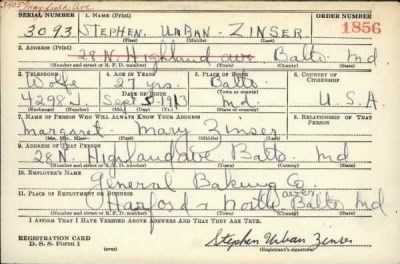 3405 Mayfield Ave
SERIAL NUMBER 1. NAME (Print) ORDER NUMBER
3093 STEPHEN URBAN - ZINSER 1856
(First) (Middle) (Last)
2. ADDRESS (Print)
28 N Highland ave Balto Md
(Number and street or R. F. D. number) (Town) (County) (State)
3. TELEPHONE 4. AGE IN YEARS 5. PLACE OF BIRTH 6. COUNTRY OF CITIZENSHIP
Wolfe 27 yrs. Balto
DATE OF BIRTH (Town or county)
4298 Sept 5-1913 Md. U.S.A
(Exchange) (Number) (Mo.) (Day) (Yr.) (State or country)
7. NAME OF PERSON WHO WILL ALWAYS KNOW YOUR ADDRESS 8. RELATIONSHIP OF THAT PERSON
Margaret Mary Zinser
(Mr., Mrs., Miss) (First) (Middle) (Last)
9. ADDRESS OF THAT PERSON
28 N. Highland ave Balto Md
(Number and street or R. F. D. number) (Town) (County) (State)
10. EMPLOYER'S NAME
General Baking Co
11. PLACE OF EMPLOYMENT OR BUSINESS
Harford & North Balto Md
(Number and street or R. F. D. number) (Town) (County) (State)
I AFFIRM THAT I HAVE VERIFIED ABOVE ANSWERS AND THAT THEY ARE TRUE.
REGISTRATION CARD
D. S. S. Form 1 (over) Stephen Urban Zinser
(Registrant's signature)